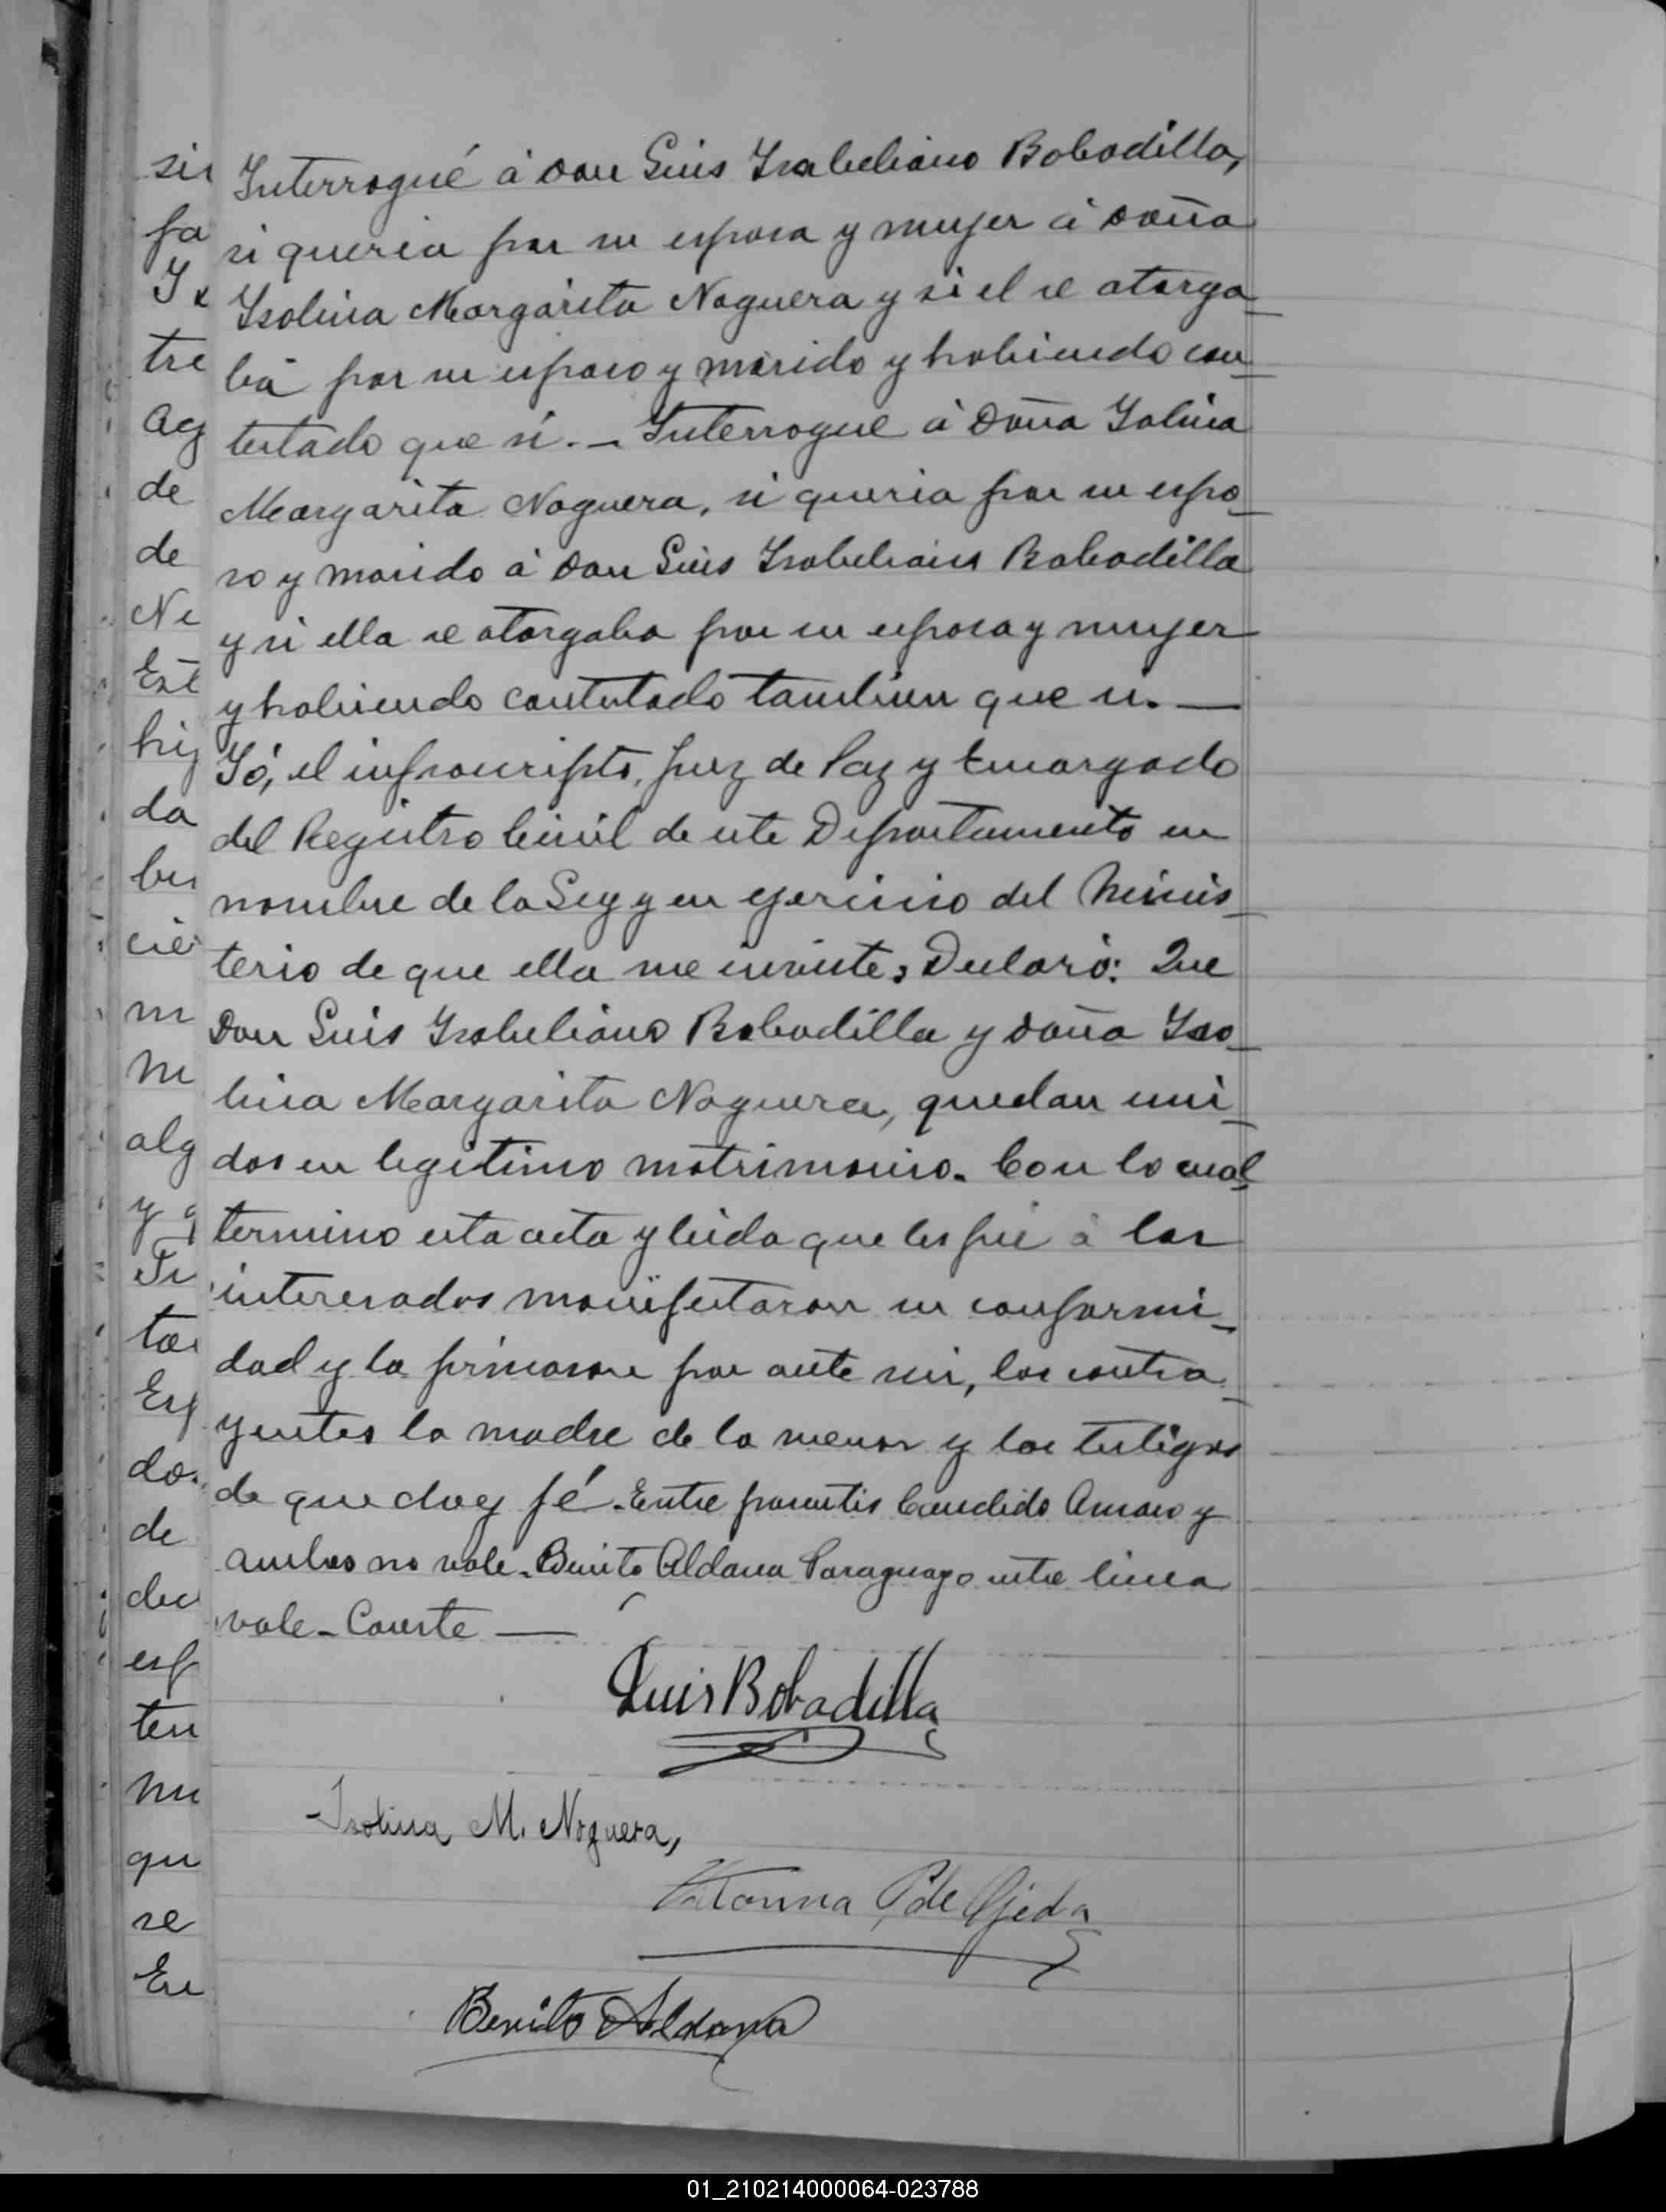 Interrogué á Don Luis Isabeliano Bobadilla,
si queria por su esposa y mujer á Doña
Isolina Margarita Noguera y si el se otorga-
ba por su esposo y marido y habiendo con-
testado que si. — Interrogue á Doña Isolina
Margarita Noguera, si queria por su espo-
so y marido á Don Luis Isabeliano Bobadilla
y si ella se otorgaba por su esposa y mujer
y habiendo contestado tambien que si. —
Yó, el infrascripto, Juez de Paz y Encargado
del Registro Civil de este Departamento en
nombre de la Ley y en ejercicio del Minis-
terio de que ella me inviste, Declaró: Que
Don Luis Isabeliano Bobadilla y Doña Iso-
lina Margarita Noguera, quedan uni-
dos en legitimo matrimonio. Con lo cual
termino esta acta y leida que les fué á los
interesados manifestaron su conformi-
dad y la firmaron por ante mi, los contra-
yentes la madre de la menor y los testigos
de que doy fé. Entre parentis Candido Amaro y
ambos no vale. Benito Aldana Paraguayo entre linea
vale - Conste —
Luis Bobadilla
Isolina M. Noguera,
P. de Ojeda
Benito Aldana
sin
fa
tre
de
de
Ne
Est
hij
da
cie
m
alg
y q
ta
Esp
do.
de
dec
esp
ten
nu
qu
se
En
01_210214000064-023788